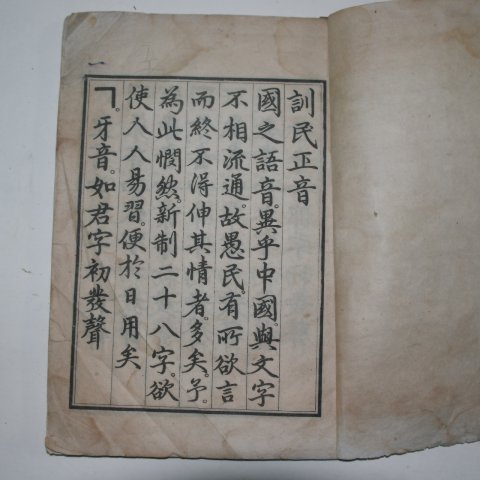 訓民正音
國之語音。異乎中國。與文字
不相流通。故愚民。有所欲言
而終不得伸其情者。多矣。予。
為此憫然。新制二十八字。欲
使人人易習。便於日用矣
ㄱ。牙音。如君字初發聲
一